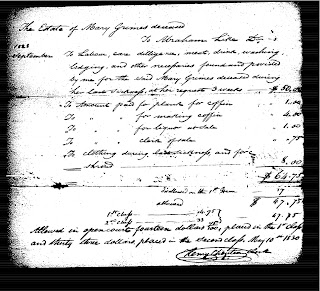 The Estate of Mary Grimes deceased
To Abraham Like Dr
1828
September To Labour, care dilligence, meat, drink, washing
lodging, and other necessaries found and provided
by me for the said Mary Grimes deceased during
her last sickness, at her request 3 weeks $50.00
To Amount paid for planks for coffin 1.00
To " for making coffin 4.00
To " for liquor at sale 1.00
To " clerk of sale .75
To clothing during last sickness and for
shroud 8.00
$64.75
disallowed in the 1st
allowed $47.75
1st class 14.75
2nd class 33
47.75
Allowed in open court fourteen dollars placed in the 1st class
and thirty three dollars placed in the second class, May 10th 1830
Clerk